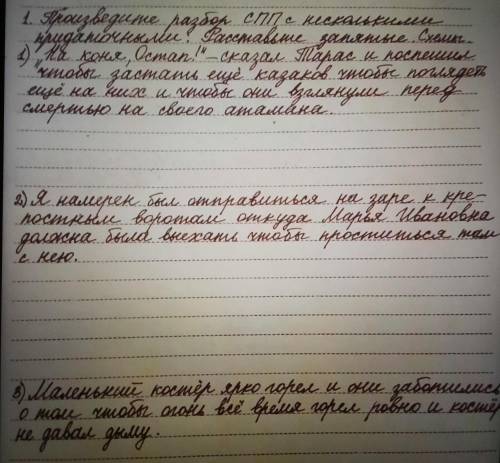 1. Произведите разбор СПП с несколькими
придаточными. Расставьте запятые. Схемы.
1) "На коня, Остап!" – сказал Тарас и поспешил
чтобы застать ещё казаков чтобы поглядеть
ещё на них и чтобы они взглянули перед
смертью на своего атамана.
2) Я намерен был отправиться на заре к кре-
постным воротам откуда Марья Ивановна
должна была выехать чтобы проститься там
с нею.
3) Маленький костёр ярко горел и они заботились
о том чтобы огонь всё время горел ровно и костёр
не давал дыму.